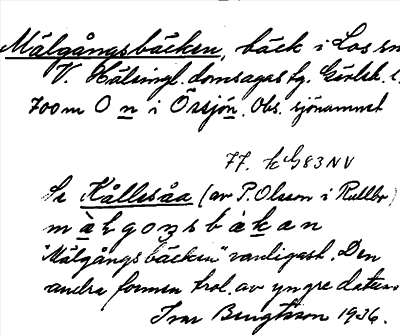 Målgångsbäcken, bäck i Los sn
V. Hälsingl. domsagas tg. Gävleb. l.
700 m O n i Örsjön. Obs. sjönamnet
77. LG83NV
Se Kållesåa (av P. Olsson i Rullbo)
målgonsbäkan
"Målgångsbäcken" vanligast. Den
andra formen trol. av yngre datum
Ivar Bengtsson 1936.